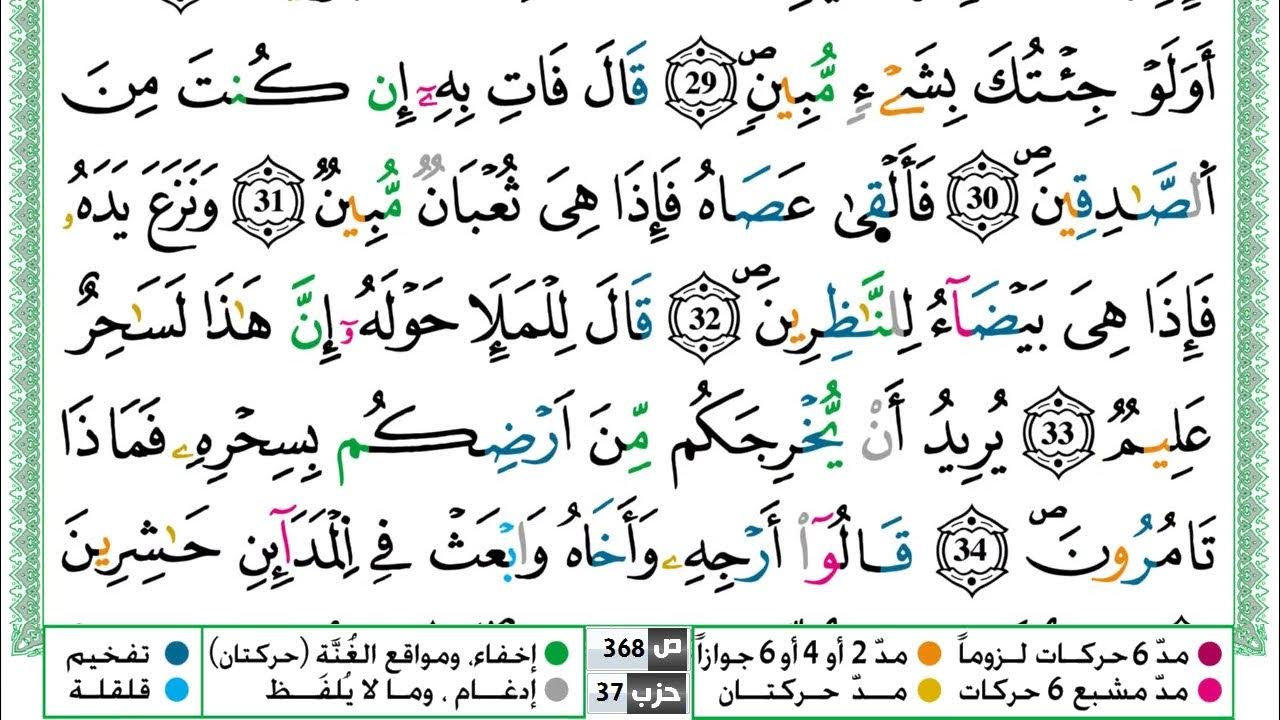 أَوَلَوْ جِئْتُكَ بِشَيْءٍ مُّبِينٍ ۝29 قَالَ فَاتِ بِهِۦٓ إِن كُنتَ مِنَ
اَ۬لصَّٰدِقِينَ ۝30 فَأَلْق۪ىٰ عَصَاهُ فَإِذَا هِىَ ثُعْبَانٌ مُّبِينٌ ۝31 وَنَزَعَ يَدَهُۥ
فَإِذَا هِىَ بَيْضَآءُ لِلنَّٰظِرِينَ ۝32 قَالَ لِلْمَلَإِ حَوْلَهُۥٓ إِنَّ هَٰذَا لَسَٰحِرٌ
عَلِيمٌ ۝33 يُرِيدُ أَنْ يُّخْرِجَكُم مِّنَ اَرْضِكُم بِسِحْرِهِۦ فَمَاذَا
تَامُرُونَ ۝34 قَالُوٓاْ أَرْجِهِۦ وَأَخَاهُ وَابْعَثْ فِے اِ۬لْمَدَآئِنِ حَٰشِرِينَ
مدّ 6 حركات لزوماً مدّ 2 أو 4 أو 6 جوازاً ص 368 إخفاء، ومواقع الغُنَّة (حركتان) تفخيم
مدّ مشبع 6 حركات مدّ حركتان حزب 37 إدغام، وما لا يُلفَظ قلقلة